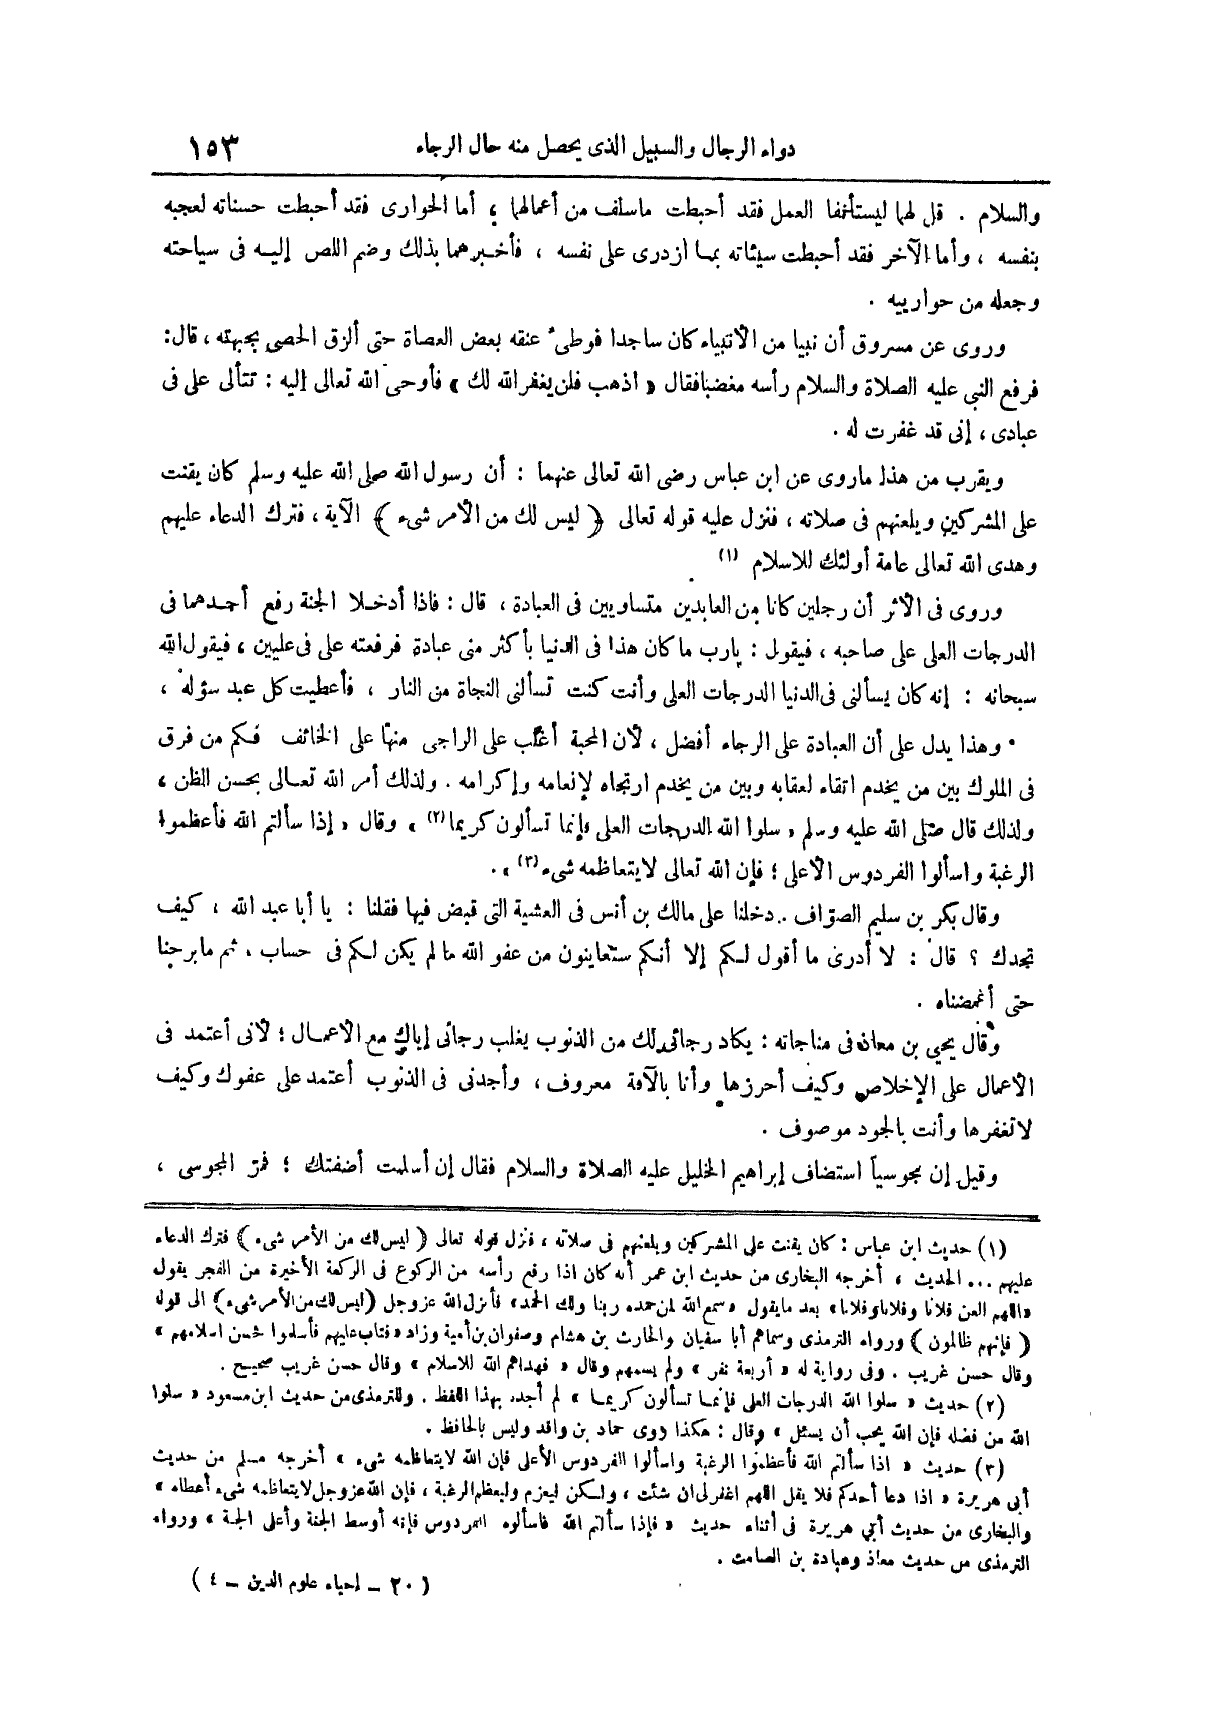 دواء الرجال والسبيل الذى يحصل منه حال الرجاء ١٥٣
والسلام . قل لهما ليستأنفا العمل فقد أحبطت ماسلف من أعمالهما ؛ أما الحوارى فقد أحبطت حسناته لعجبه
بنفسه ، وأما الآخر فقد أحبطت سيئاته بمـا أزدرى على نفسه ، فأخـبرهما بذلك وضم اللص إليـه فى سياحته
وجعله من حوارييه .
وروى عن مسروق أن نبيا من الأنبياء كان ساجدا فوطىء عنقه بعض العصاة حتى ألزق الحصى بجبهته ، قال :
فرفع النبى عليه الصلاة والسلام رأسه مغضبا فقال « اذهب فلن يغفر الله لك » فأوحى الله تعالى إليه : تتألى على فى
عبادى ، إنى قد غفرت له .
ويقرب من هذا ماروى عن ابن عباس رضى الله تعالى عنهما : أن رسول الله صلى الله عليه وسلم كان يقنت
على المشركين ويلعنهم فى صلاته ، فنزل عليه قوله تعالى ﴿ ليس لك من الأمر شىء ﴾ الآية ، فترك الدعاء عليهم
وهدى الله تعالى عامة أولئك للاسلام (١)
وروى فى الأثر أن رجلين كانا من العابدين متساويين فى العبادة ، قال : فاذا أدخـلا الجنة رفع أحـدهما فى
الدرجات العلى على صاحبه ، فيقول : يارب ما كان هذا فى الدنيا بأكثر منى عبادة فرفعته على فى عليين ، فيقول الله
سبحانه : إنه كان يسألنى فى الدنيا الدرجات العلى وأنت كنت تسألنى النجاة من النار ، فأعطيت كل عبد سؤله ،
وهذا يدل على أن العبادة على الرجاء أفضل ، لأن المحبة أغلب على الراجى منها على الخائف فـكم من فرق
فى الملوك بين من يخدم اتقاء لعقابه وبين من يخدم ارتجاء لإنعامه وإكرامه . ولذلك أمر الله تعـالى بحسن الظن ،
ولذلك قال صلى الله عليه وسلم « سلوا الله الدرجات العلى فإنما تسألون كريما (٢) » وقال « إذا سألتم الله فأعظموا
الرغبة واسألوا الفردوس الأعلى ؛ فإن الله تعالى لايتعاظمه شىء (٣) » .
وقال بكر بن سليم الصواف : دخلنا على مالك بن أنس فى العشية التى قبض فيها فقلنا : يا أبا عبد الله ، كيف
تجدك ؟ قال : لا أدرى ما أقول لـكم إلا أنكم ستعاينون من عفو الله ما لم يكن لـكم فى حساب ، ثم ما برحنا
حتى أغمضناه .
وقال يحيى بن معاذ فى مناجاته : يكاد رجائى لك من الذنوب يغلب رجائى إياك مع الأعمـال ؛ لأنى أعتمد فى
الأعمال على الإخلاص وكيف أحرزها وأنا بالآفة معروف ، وأجدنى فى الذنوب أعتمد على عفوك وكيف
لاتغفرها وأنت بالجود موصوف .
وقيل إن مجوسياً استضاف إبراهيم الخليل عليه الصلاة والسلام فقال إن أسلمت أضفتك ؛ فمرّ المجوسى ،
(١) حديث ابن عباس : كان يقنت على المشركين ويلعنهم فى صلاته ، فنزل قوله تعالى ﴿ ليس لك من الأمر شىء ﴾ فترك الدعاء
عليهم ... الحديث ، أخرجه البخارى من حديث ابن عمر أنه كان اذا رفع رأسه من الركوع فى الركعة الأخيرة من الفجر يقول
«اللهم العن فلانا وفلانا وفلانا» بعد ما يقول «سمع الله لمن حمده ربنا ولك الحمد» فأنزل الله عزوجل ﴿ليس لك من الأمر شىء﴾ الى قوله
﴿ فإنهم ظالمون ﴾ ورواه الترمذى وسماهم أبا سفيان والحارث بن هشام وصفوان بن أمية وزاد «فتاب عليهم فأسلموا فحسن اسلامهم »
وقال حسن غريب . وفى رواية له « أربعة نفر » ولم يسمهم وقال « فهداهم الله للاسلام » وقال حسن غريب صحيح .
(٢) حديث « سلوا الله الدرجات العلى فإنمـا تسألون كريمـا » لم أجده بهذا اللفظ . وللترمذى من حديث ابن مسعود « سلوا
الله من فضله فإن الله يحب أن يسئل » وقال : هكذا روى حماد بن واقد وليس بالحافظ .
(٣) حديث « اذا سألتم الله فأعظموا الرغبة واسألوا الفردوس الأعلى فإن الله لايتعاظمه شىء » أخرجه مسلم من حديث
أبى هريرة « اذا دعا أحدكم فلا يقل اللهم اغفر لى ان شئت ، ولـكن ليعزم وليعظم الرغبة ، فإن الله عزوجل لايتعاظمه شىء أعطاه »
والبخارى من حديث أبى هريرة فى أثناء حديث « فإذا سألتم الله فاسألوه الفردوس فإنه أوسط الجنة وأعلى الجنة » ورواه
الترمذى من حديث معاذ وعبادة بن الصامت .
( ٢٠ – إحياء علوم الدين – ٤ )